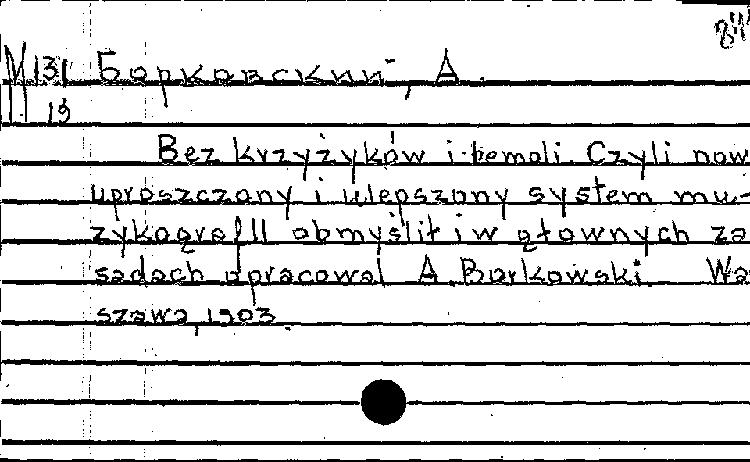 М 131 Борковский, А.
13
Bez krzyżyków i bemoli. Czyli now
uproszczony i ulepszony system mu-
zykografII obmyślił i w głownych za
sadach opracował A. Borkowski. Wa
szawa, 1903.